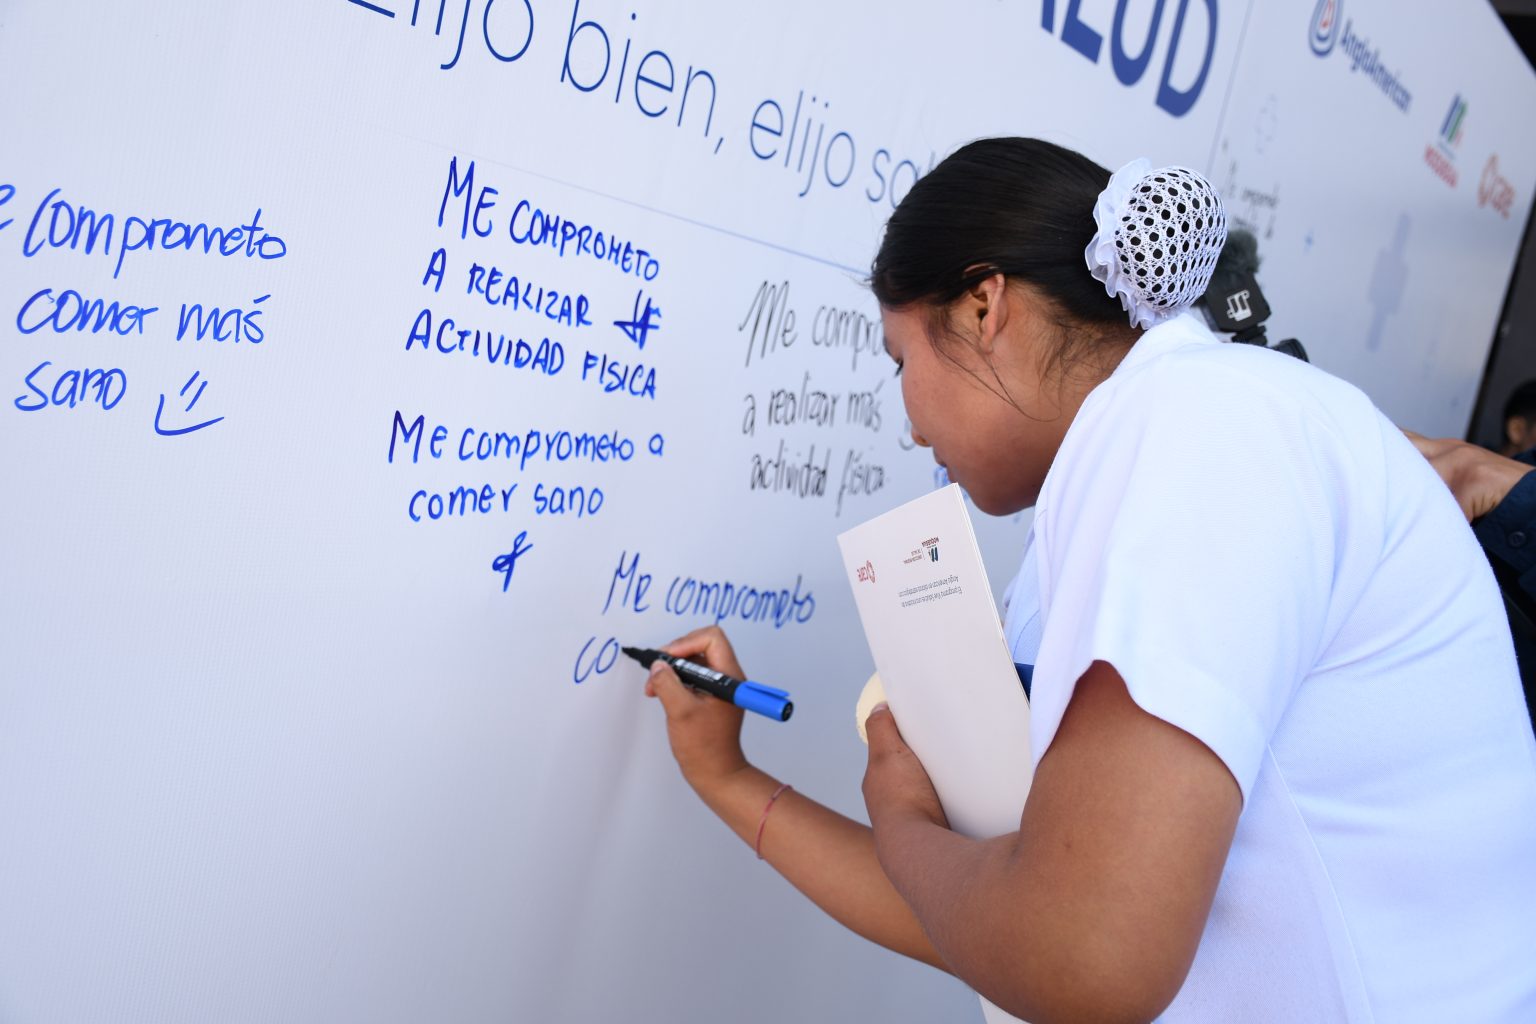 Elijo bien, elijo
AngloAmerican
MOQUEGUA
care
comprometo
comer más
sano
ME COMPROMETO
A REALIZAR
ACTIVIDAD FISICA
Me comprometo a
comer sano
Me
a realizar más
actividad física.
Me comprometo
co
MOQUEGUA
care